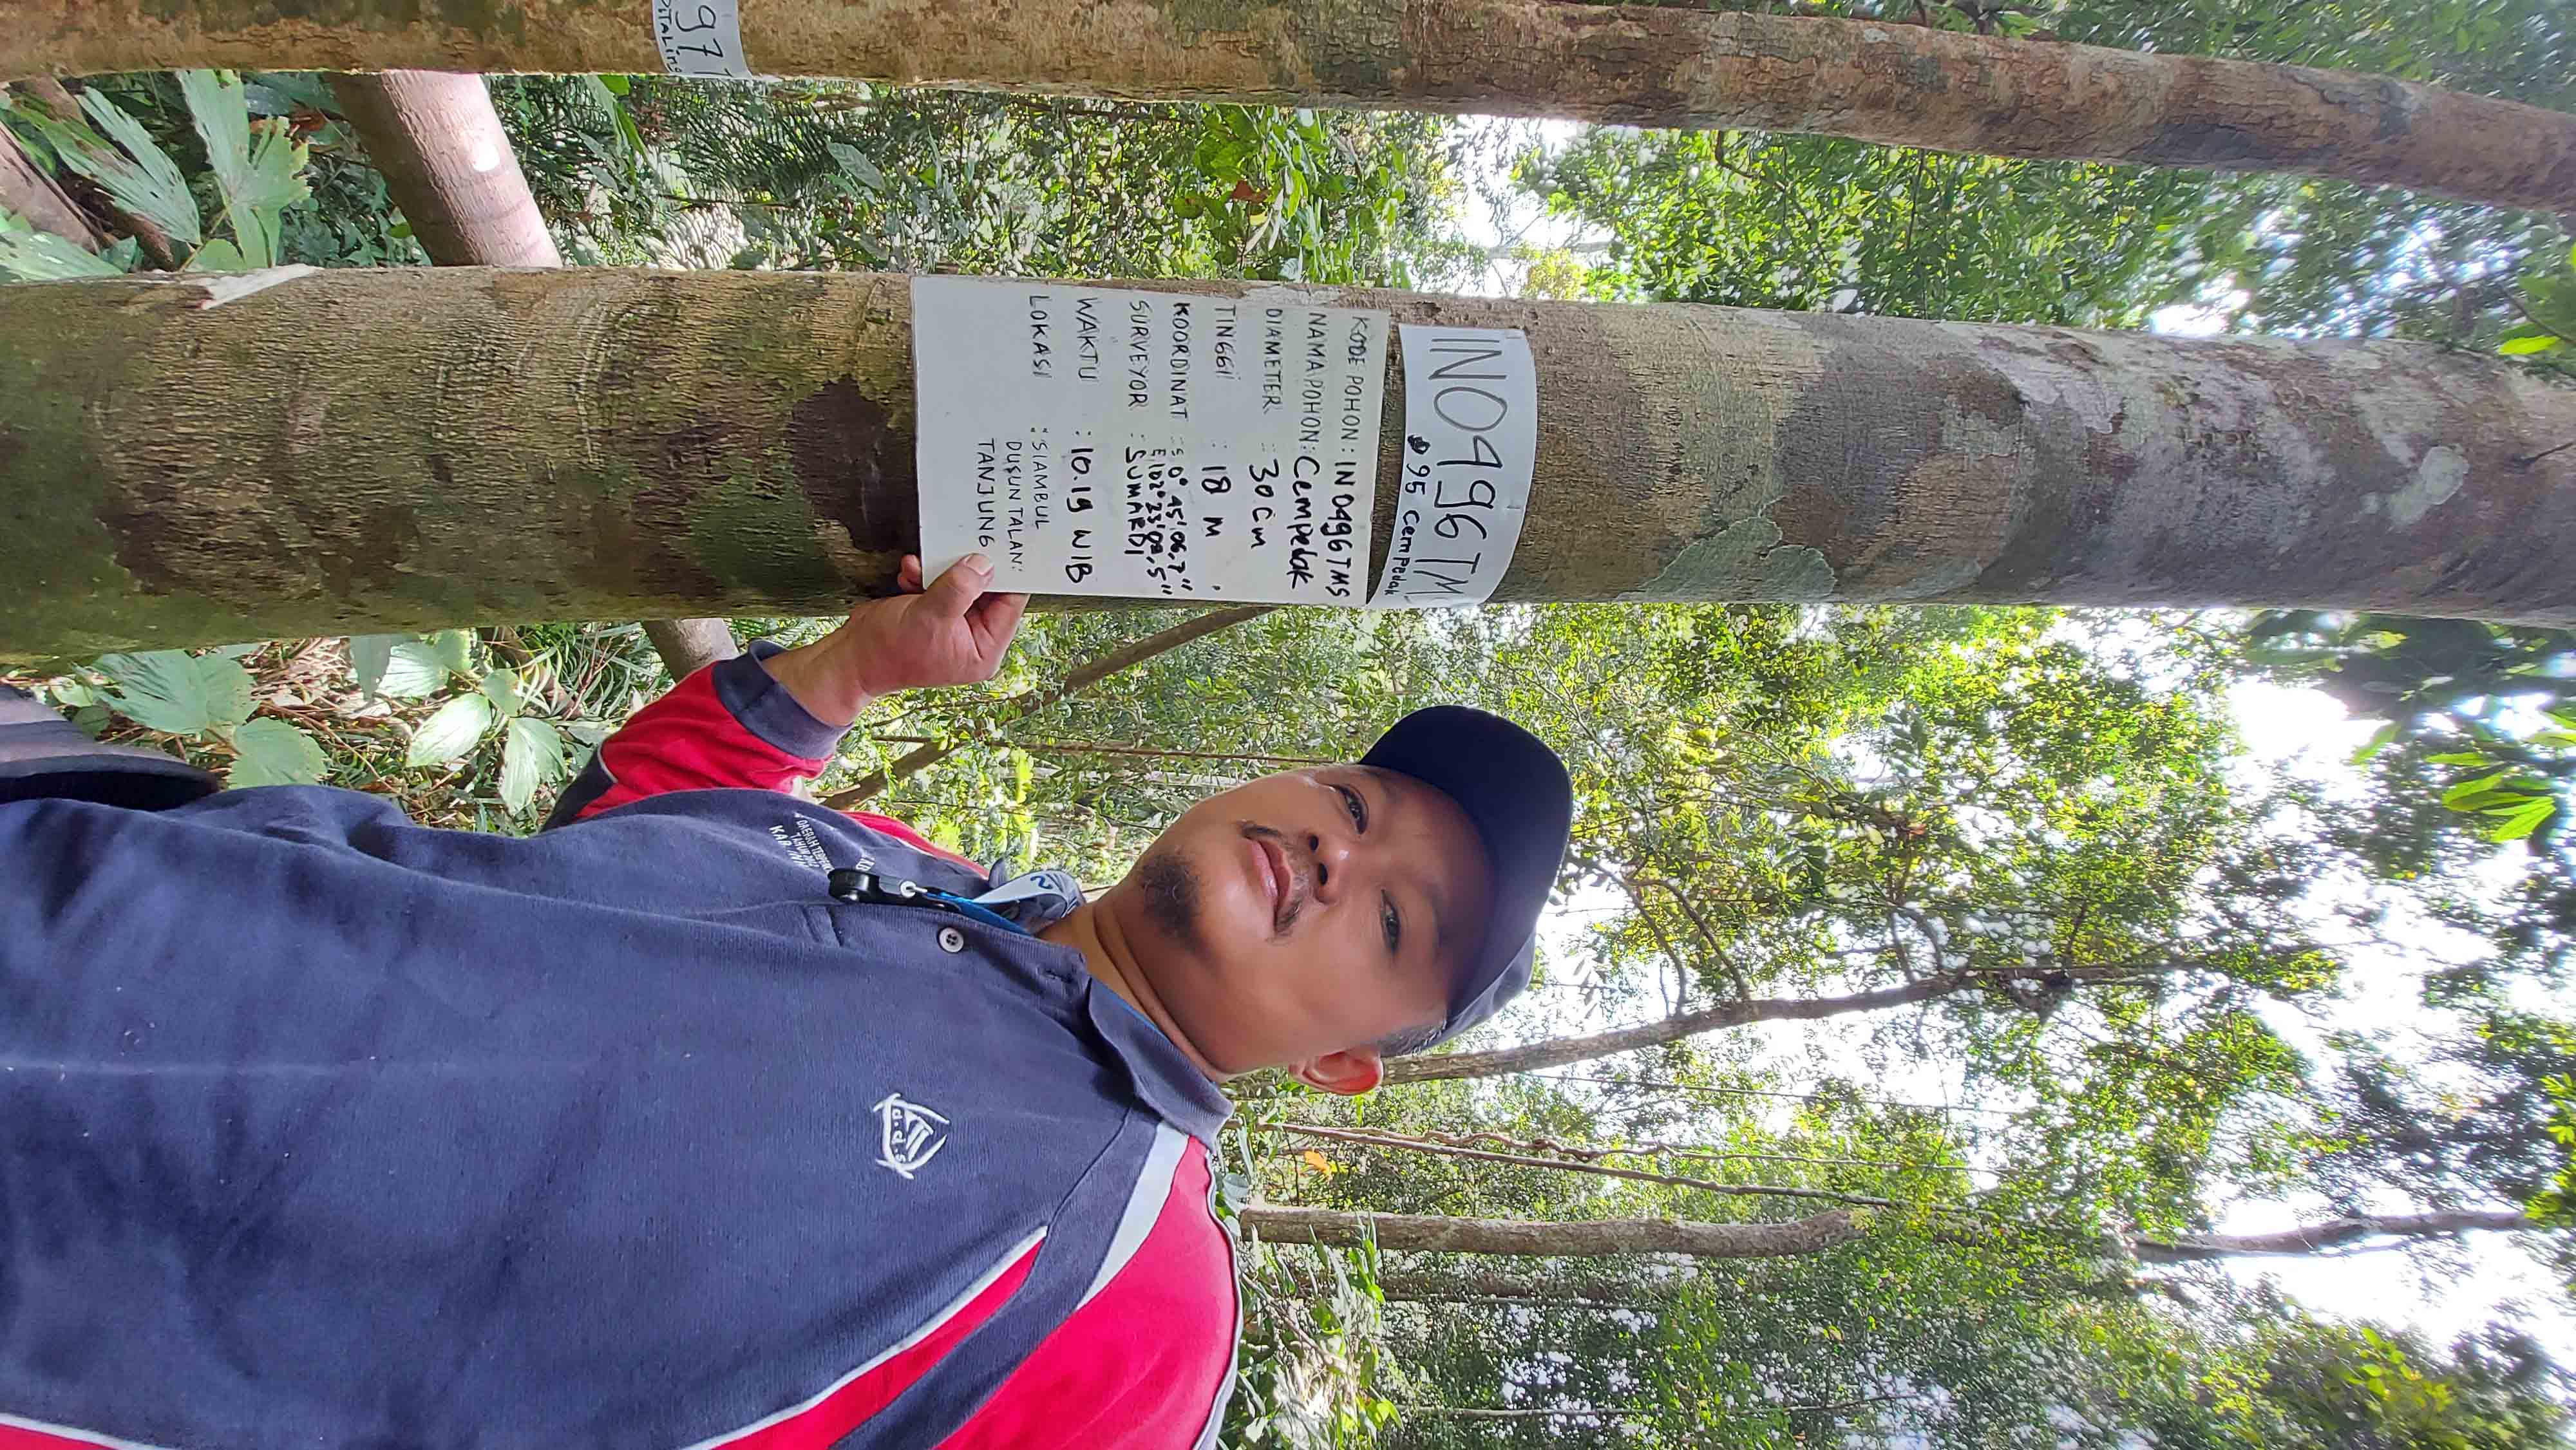 INO496TMS
95 Cempedak
KODE POHON : INO496TMS
NAMA POHON : Cempedak
DIAMETER : 30 Cm
TINGGI : 18 M
KOORDINAT : S 0° 45' 06,7"
E 102° 23' 09,5"
SURVEYOR : SUMARDI
WAKTU : 10.19 WIB
LOKASI : SIAMBUL
DUSUN TALAN:
TANJUNG
97T
PITALING
d.d.s
DAERAH
TAHUN
KAB.